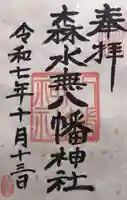 奉拝
森水無八幡神社
令和七年十月十三日